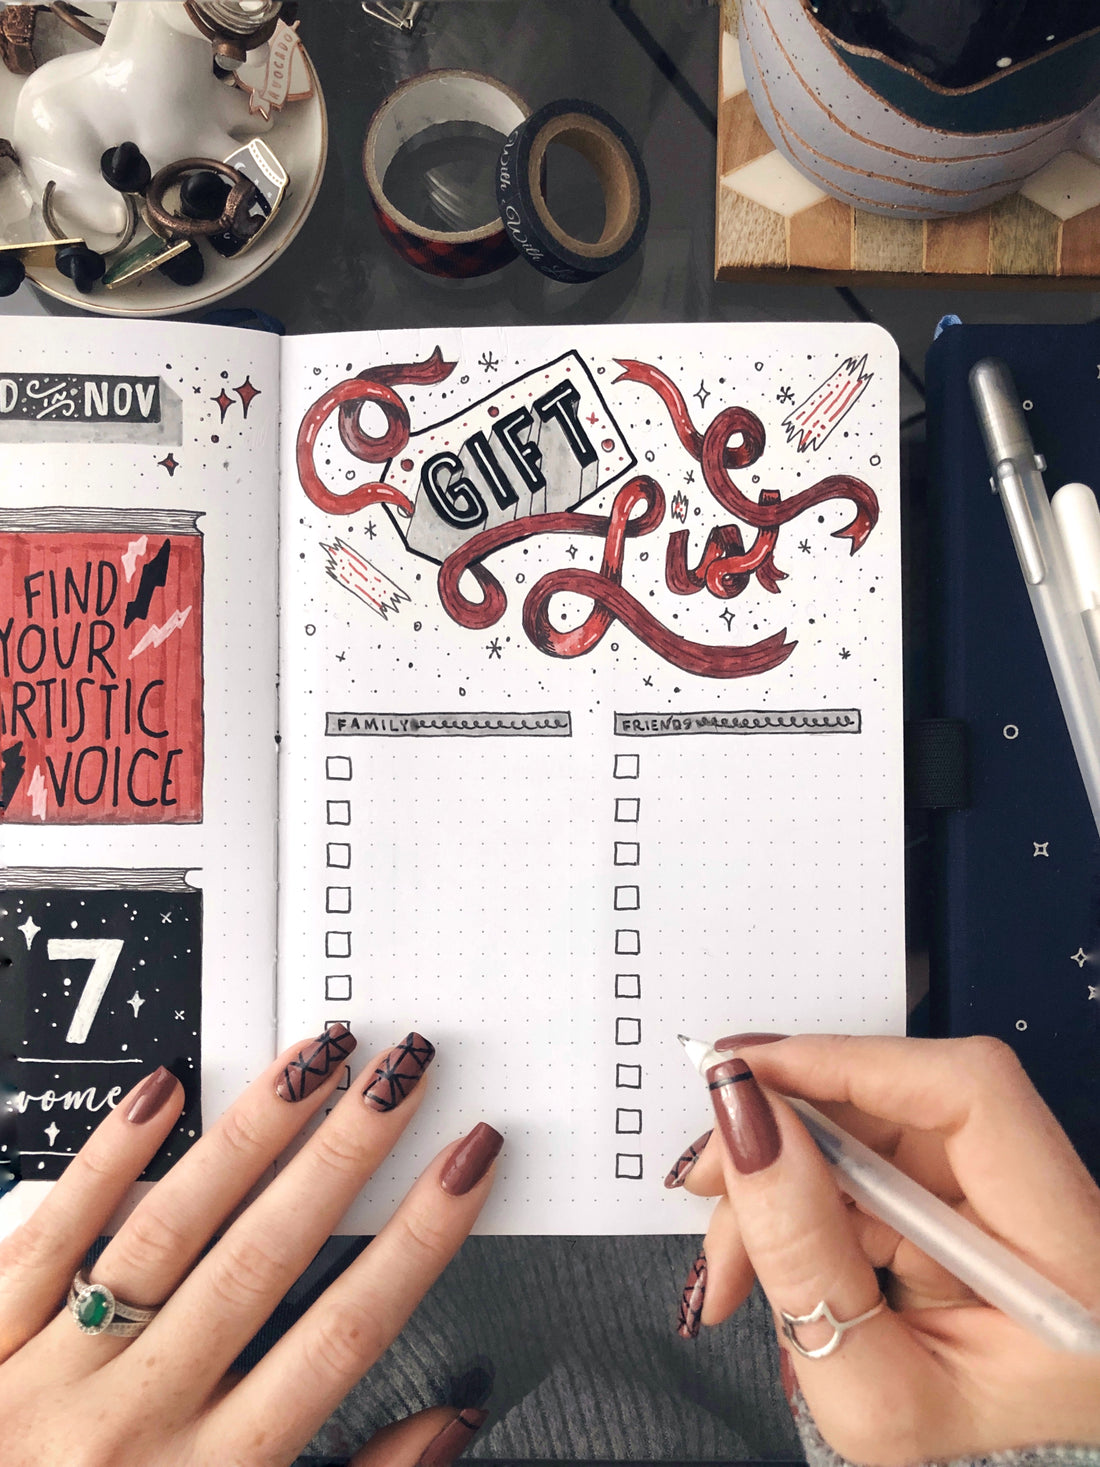 AVOCADO
With
With
D in NOV
FIND
YOUR
ARTISTIC
VOICE
7
women
GIFT
List
FAMILY
FRIENDS